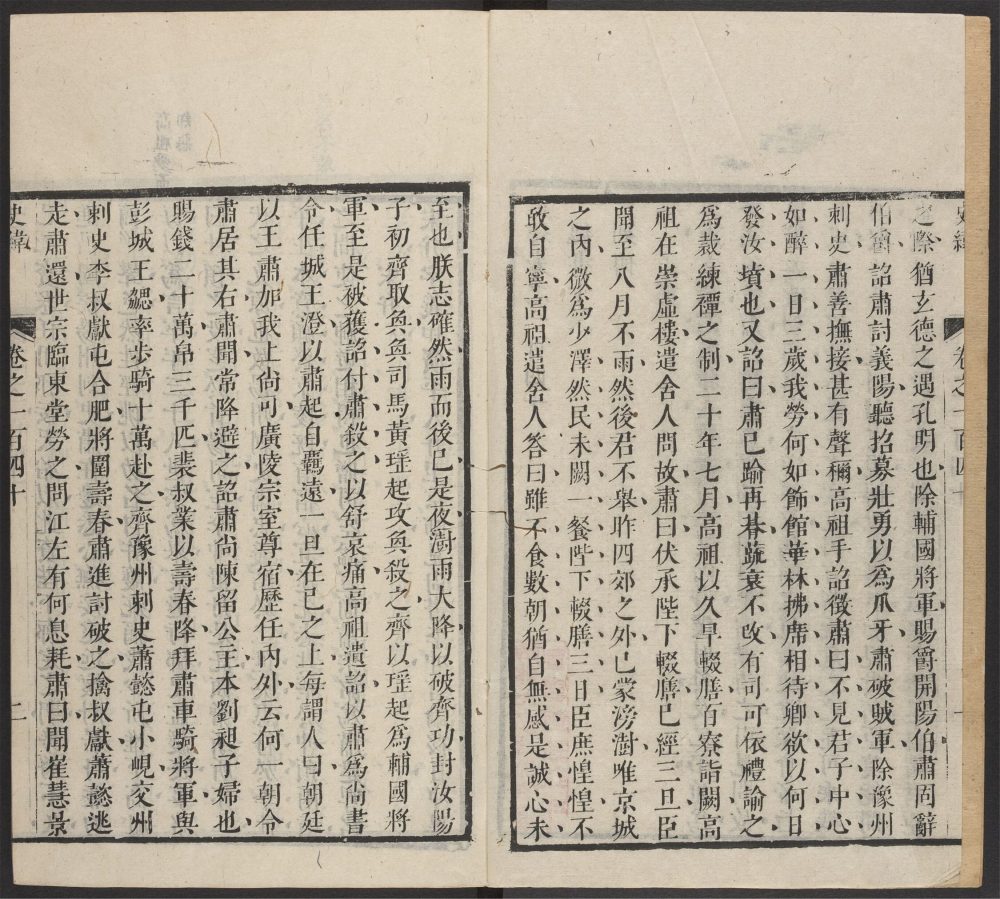 史緯
卷之一百四十
之際猶玄德之遇孔明也除輔國將軍賜爵開陽伯肅固辭
伯爵詔肅討義陽聽招募壯勇以爲爪牙肅破賊軍除豫州
刺史肅善撫接甚有聲稱高祖手詔徵肅曰不見君子中心
如醉一日三歲我勞何如飾館華林拂席相待卿欲以何日
發汝墳也又詔曰肅已踰再朞蔬衰不改有司可依禮諭之
爲裁練禫之制二十年七月高祖以久旱輟膳百寮詣闕高
祖在崇虛樓遣舍人問故肅曰伏承陛下輟膳已經三旦臣
聞至八月不雨然後君不舉昨四郊之外已蒙滂澍唯京城
之內微爲少澤然民未闕一餐陛下輟膳三日臣庶惶惶不
敢自寧高祖遣舍人答曰雖不食數朝猶自無感是誠心未
至也朕志確然雨而後已是夜澍雨大降以破齊功封汝陽
子初齊取奐奐司馬黃瑶起攻奐殺之齊以瑶起爲輔國將
軍至是被獲詔付肅殺之以舒哀痛高祖遺詔以肅爲尙書
令任城王澄以肅起自羈遠一旦在已之上每謂人曰朝廷
以王肅加我上尙可廣陵宗室尊宿歷任內外云何一朝令
肅居其右肅聞常降避之詔肅尙陳留公主本劉昶子婦也
賜錢二十萬帛三千匹裴叔業以壽春降拜肅車騎將軍與
彭城王勰率步騎十萬赴之齊豫州刺史蕭懿屯小峴交州
刺史李叔獻屯合肥將圍壽春肅進討破之擒叔獻蕭懿逃
走肅還世宗臨東堂勞之問江左有何息耗肅曰聞崔慧景
史緯
卷之一百四十
二